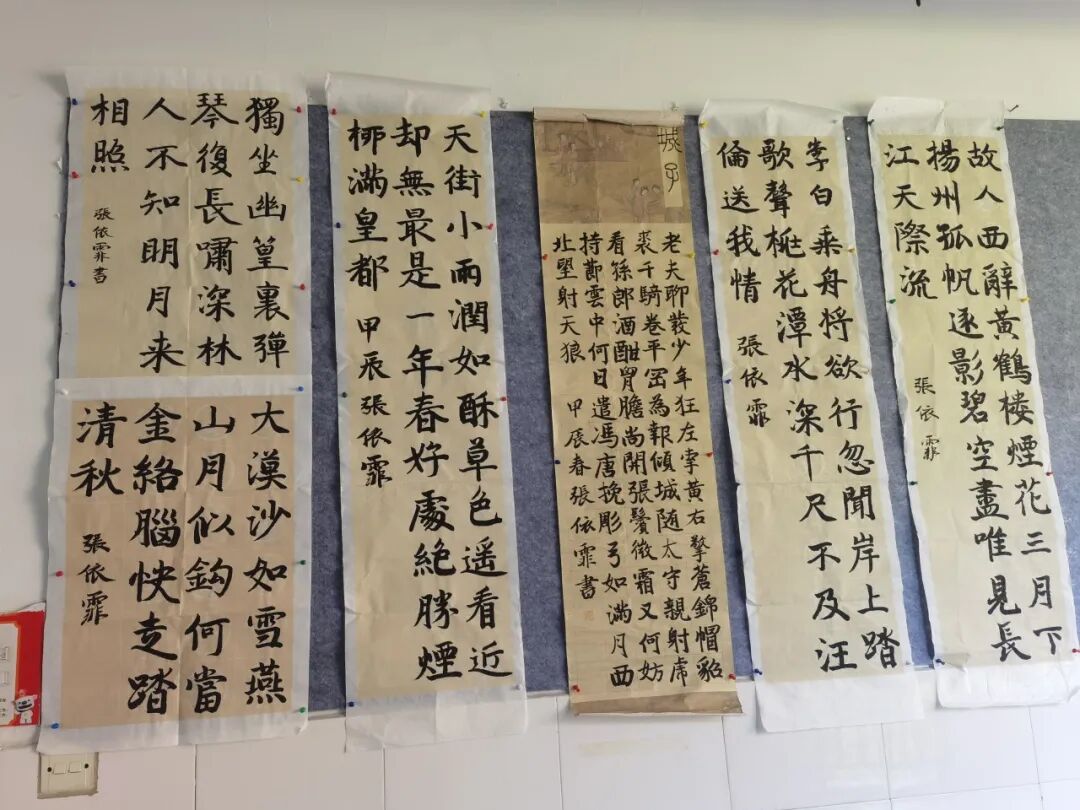 故人西辭黃鶴楼煙花三月下
揚州孤帆逐影碧空盡唯見長
江天際流 張依霏
李白乘舟将欲行忽聞岸上踏
歌聲桃花潭水深千尺不及汪
倫送我情 張依霏
城子
老夫聊發少年狂左牽黃右擎蒼錦帽貂
裘千騎卷平岡為報傾城随太守親射虎
看孫郎酒酣胷膽尚開張鬢微霜又何妨
持節雲中何日遣馮唐挽彫弓如満月西
北望射天狼 甲辰春張依霏書
天街小雨潤如酥草色遥看近
却無最是一年春好處絶勝煙
栁满皇都 甲辰張依霏
獨坐幽篁裏彈
琴復長嘯深林
人不知明月来
相照 張依霏書
大漠沙如雪燕
山月似鈎何當
金絡腦快走踏
清秋 張依霏